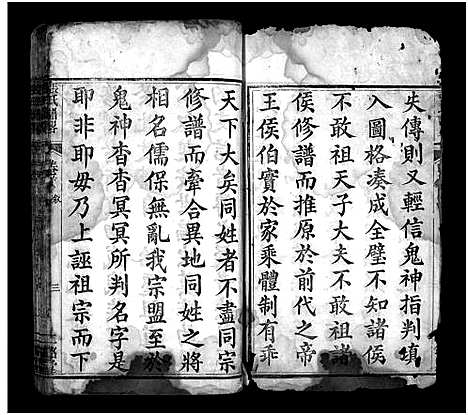 失傳則又輕信鬼神指判填
入圖格凑成全壁不知諸侯
不敢祖天子大夫不敢祖諸
侯修譜而推原於前代之帝
王侯伯實於家乘體制有乖
天下大矣同姓者不盡同宗
修譜而牽合異地同姓之將
相名儒保無亂我宗盟至於
鬼神杳杳冥冥所判名字是
耶非耶毋乃上誣祖宗而下
三